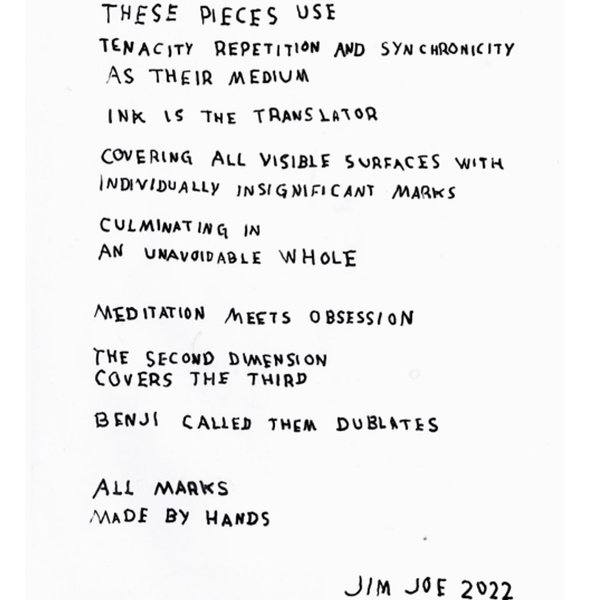 THESE PIECES USE
TENACITY REPETITION AND SYNCHRONICITY
AS THEIR MEDIUM
INK IS THE TRANSLATOR
COVERING ALL VISIBLE SURFACES WITH
INDIVIDUALLY INSIGNIFICANT MARKS
CULMINATING IN
AN UNAVOIDABLE WHOLE
MEDITATION MEETS OBSESSION
THE SECOND DIMENSION
COVERS THE THIRD
BENJI CALLED THEM DUBLATES
ALL MARKS
MADE BY HANDS
JIM JOE 2022